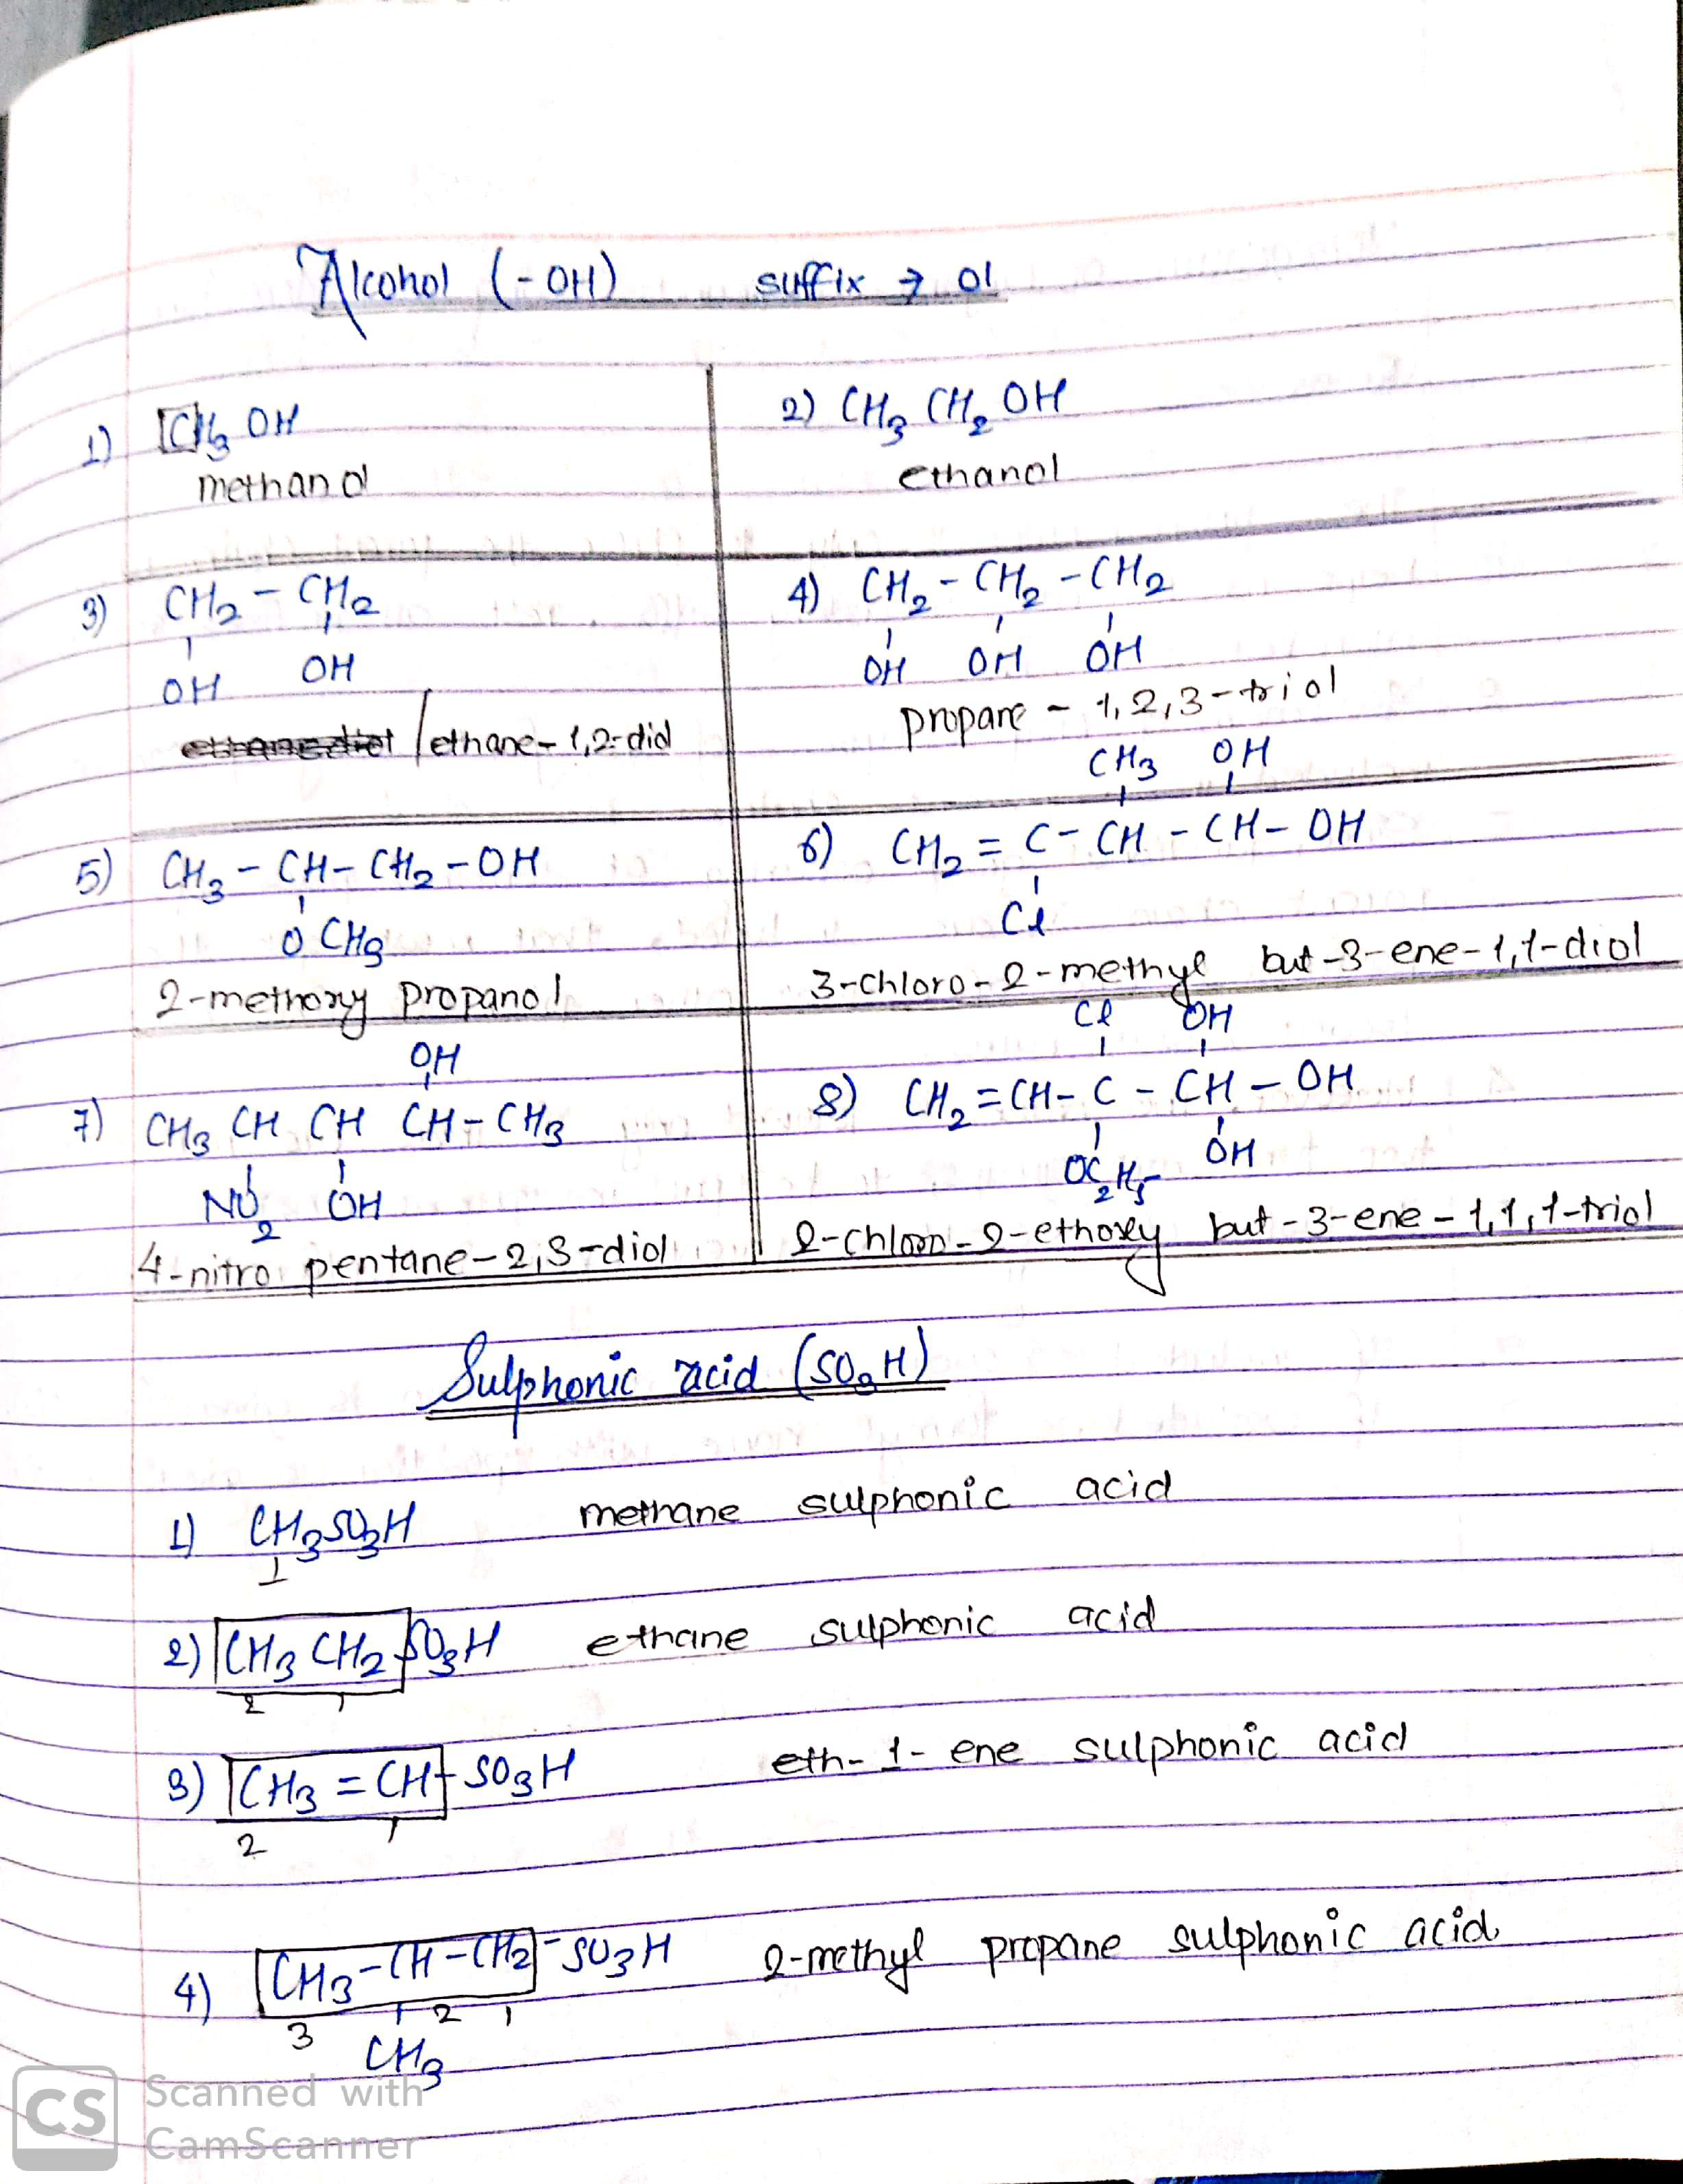 Alcohol (-OH) suffix → ol
1) CH3 OH
methanol
2) CH3 CH2 OH
ethanol
3) CH2 - CH2
OH OH
/ethane-1,2-diol
4) CH2 - CH2 - CH2
OH OH OH
propane - 1,2,3-triol
5) CH3 - CH - CH2 - OH
O CH3
2-methoxy propanol
CH3 OH
6) CH2 = C - CH - CH - OH
Cl
3-chloro-2-methyl but-3-ene-1,1-diol
OH
7) CH3 CH CH CH-CH3
NO2 OH
4-nitro pentane-2,3-diol
Cl OH
8) CH2 = CH - C - CH - OH
OC2H5 OH
2-chloro-2-ethoxy but-3-ene-1,1,1-triol
Sulphonic acid (SO3H)
1) CH3SO3H methane sulphonic acid
1
2) CH3 CH2 SO3H ethane sulphonic acid
2 1
3) CH3 = CH - SO3H eth-1-ene sulphonic acid
2 1
4) CH3 - CH - CH2 - SO3H 2-methyl propane sulphonic acid
3 2 1
CH3
CS Scanned with
CamScanner